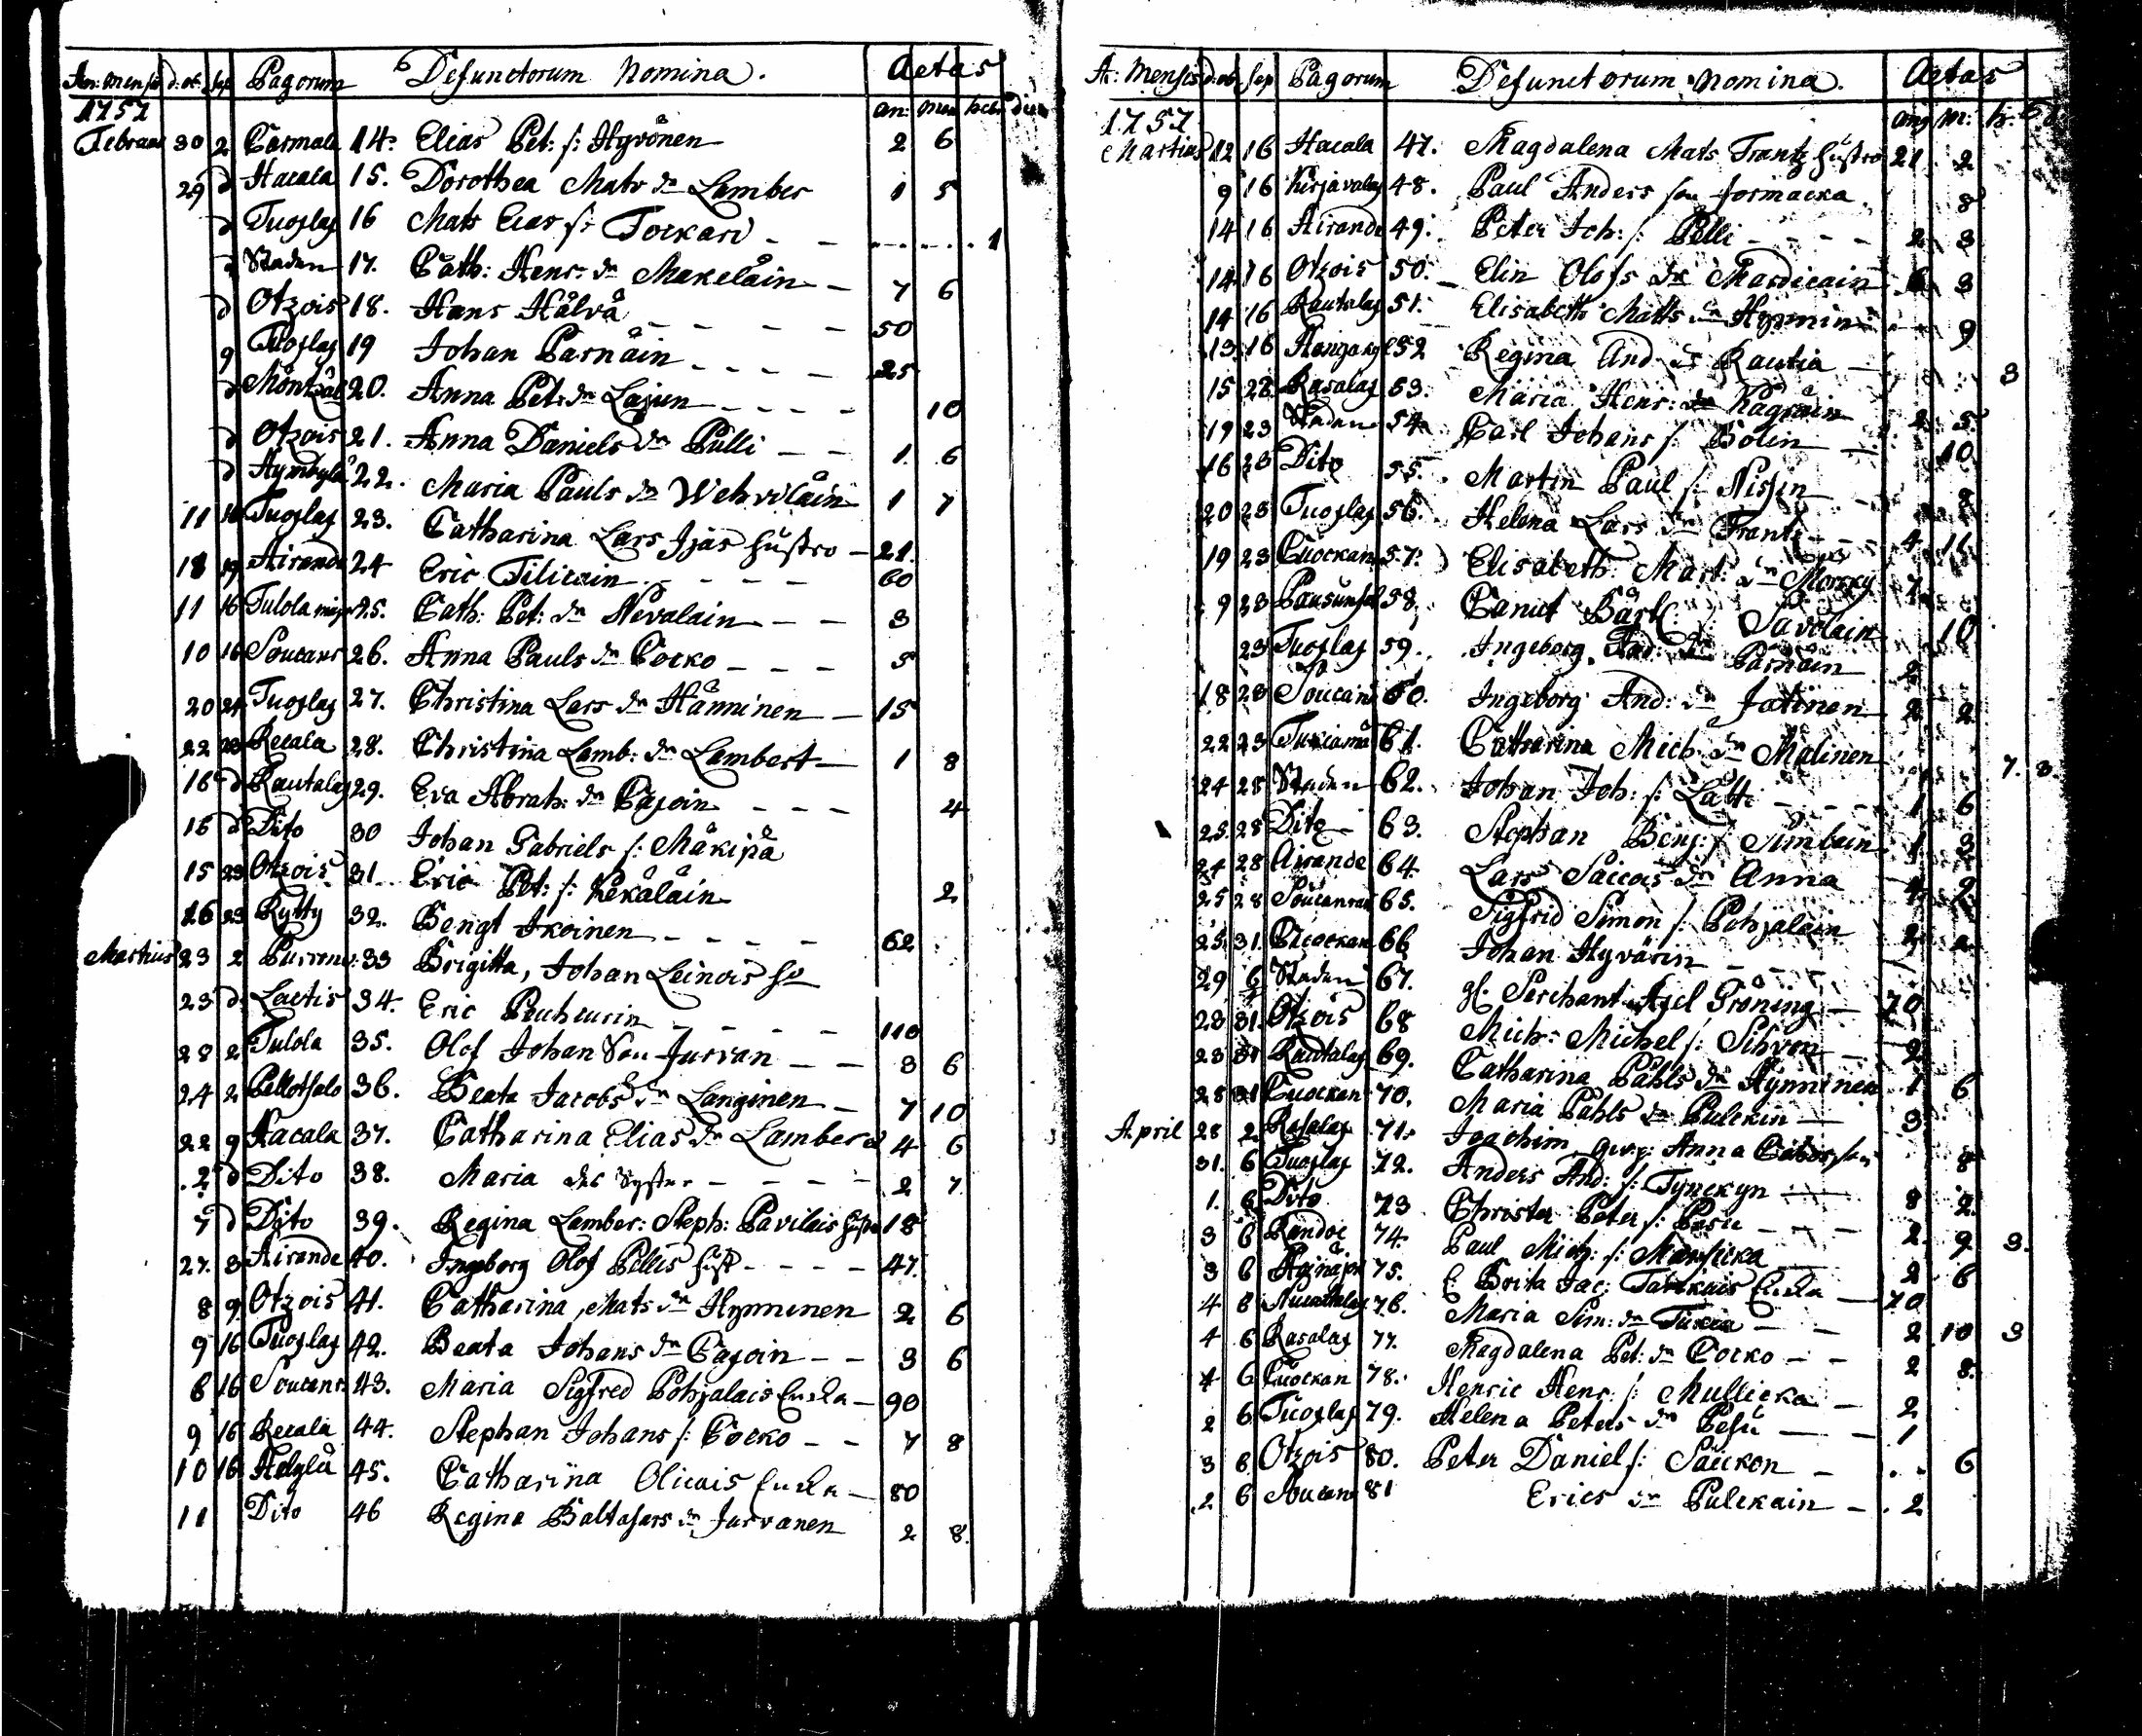 An: Mensis d: ob: sep Pagorum Defunctorum Nomina. Aetas
1757 an: men heb: dies
Februar 30 2 Cormala 14. Elias Pet: s: Hyvönen 2 6
29 d Hacala 15. Dorothea Mats dr Lamber 1 5
d Tuoslag 16 Mats Elias s: Tockari - - 1
d Staden 17. Cath: Henr: dr Makeläin - 7 6
d Otzois 18. Hans Hälvä - - - - 50
9 Tuoslag 19 Johan Parnäin - - - - 25
d 20. Anna Pet: dr Lajun - - - - 10
d Otzois 21. Anna Daniels dr Pulli - - 1. 6
d 22. Maria Pauls dr Wehviläin 1 7
11 16 Tuoslag 23. Catharina Lars Ijäs hustro - 21.
18 19 Airande 24 Eric Tilicain - - - - 60
11 16 Tulola 25. Cath: Pet: dr Nevalain - - 3
10 16 Soucans 26. Anna Pauls dr Cocko - - - 5
20 21 Tuoslag 27. Christina Lars dr Hänninen - 15
22 23 Recala 28. Christina Lamb: dr Lambert - 1 8
16 d Rautalag 29. Eva Abrah: dr Cajoin - - - 4
16 d Dito 30 Johan Gabriels s: Mäkipä
15 23 Otzois 31. Eric Pet: s: Kekäläin 2
16 23 Rytty 32. Bengt Ikoinen - - - - 62
Martius 23 2 33 Brigitta, Johan Leinois ho
23 d Laetis 34. Eric Peuhcurin - - - - 110
28 2 Tulola 35. Olof Johan Son Jurvan - - 3 6
24 2 Pellotsalo 36. Beata Jacobs dr Langinen - 7 10
22 9 Hacala 37. Catharina Elias dr Lamber 4 6
2 d Dito 38. Maria des Syster - - - - 2 7
7 d Dito 39. Regina Lamber: Steph: Pavilais 18
27. 3 Airande 40. Ingeborg Olof Pellis hust - - - - 47.
8 9 Otzois 41. Catharina, Mats dr Hynninen 2 6
9 16 Tuoslag 42. Beata Johans dr Cajoin - - 3 6
6 16 Soucans 43. Maria Sigfred Pohjalais Encka - 90
9 16 Recala 44. Stephan Johans s: Cocko - - 7 8
10 16 Helylä 45. Catharina Olicais Encka - 80
11 Dito 46 Regina Baltasars dr Jurvanen 2 8.
A: Mensis d: ob: sep Pagorum Defunctorum nomina. Aetas
1757
Martius 12 16 Hacala 47. Magdalena Mats Frantz hustro 21 2
9 16 Kirjavalag 48. Paul Anders son Jormacka 8
14 16 Airande 49. Peter Joh: s: Pelli - - - - 2 3
14 16 Otzois 50. Elin Olofs dr Mardicain 6 3
14 16 Rautalag 51. Elisabeth Matts dr Hynnin 9
13 16 52 Regina And: dr Rautia - 3
15 28 Rasalag 53. Maria Henr: dr 2 5
19 23 Staden 54. Carl Johans s: Bolin - 10
16 23 Dito 55. Martin Paul s: Nissin - 8
20 23 Tuoslag 56. Helena Lars dr Frantz - - 4 11
19 23 Cuockan 57. Elisabeth Mart: dr Morsky 7
9 23 58. Canut Bärtl: s: Savolain 10
23 Tuoslag 59. Ingeborg dr Parnäin 2
18 23 Soucans 60. Ingeborg And: dr Jatinen 2 2
22 23 61. Catharina Mich: dr Malinen 7. 3.
24 28 Staden 62. Johan Joh: s: Lätti - - - 1 6
25 28 Dito 63. Stephan Benj: s: 1 3
24 28 Airande 64. Lars Saicois dr Anna 4 9
25 28 65. Sigfrid Simon s: Pohjalain 2 2
25 31. Cuockan 66 Johan Hyvärin - - - -
29 6 Staden 67. gl. Serchant Axel Gröning - 70
23 31. Otzois 68 Mich: Michel s: Sihvon - 2
23 31 Rautalag 69. Catharina Påhls dr Hynninen 1 6
28 31 Cuockan 70. Maria Påhls dr Pulckin - 3
April 28 2 Rasalag 71. Joachim, Anna 8
31. 6 Tuoslag 72. Anders And: s: Tynckyn - 8 2
1. 6 Dito 73 Christer Peter s: Pesu - - - 2. 9. 3.
3 6 Randoe 74. Paul Mich: s: Mansicka - 2 6
3 6 75. E. Brita Jac: Tarckais Encka - 70
4 6 76. Maria Sim: dr Tucia - - 2 10 3
4 6 Rasalag 77. Magdalena Pet: dr Cocko - - 2 8.
4 6 Cuockan 78. Henric Henr: s: Mullicka - 2
2 6 Tuoslag 79. Helena Peters dr Pesu - - 1
3 6 Otzois 80. Peter Daniel s: Säickon - . . 6
2 6 Soucans 81 Erics dr Pulckain - . 2